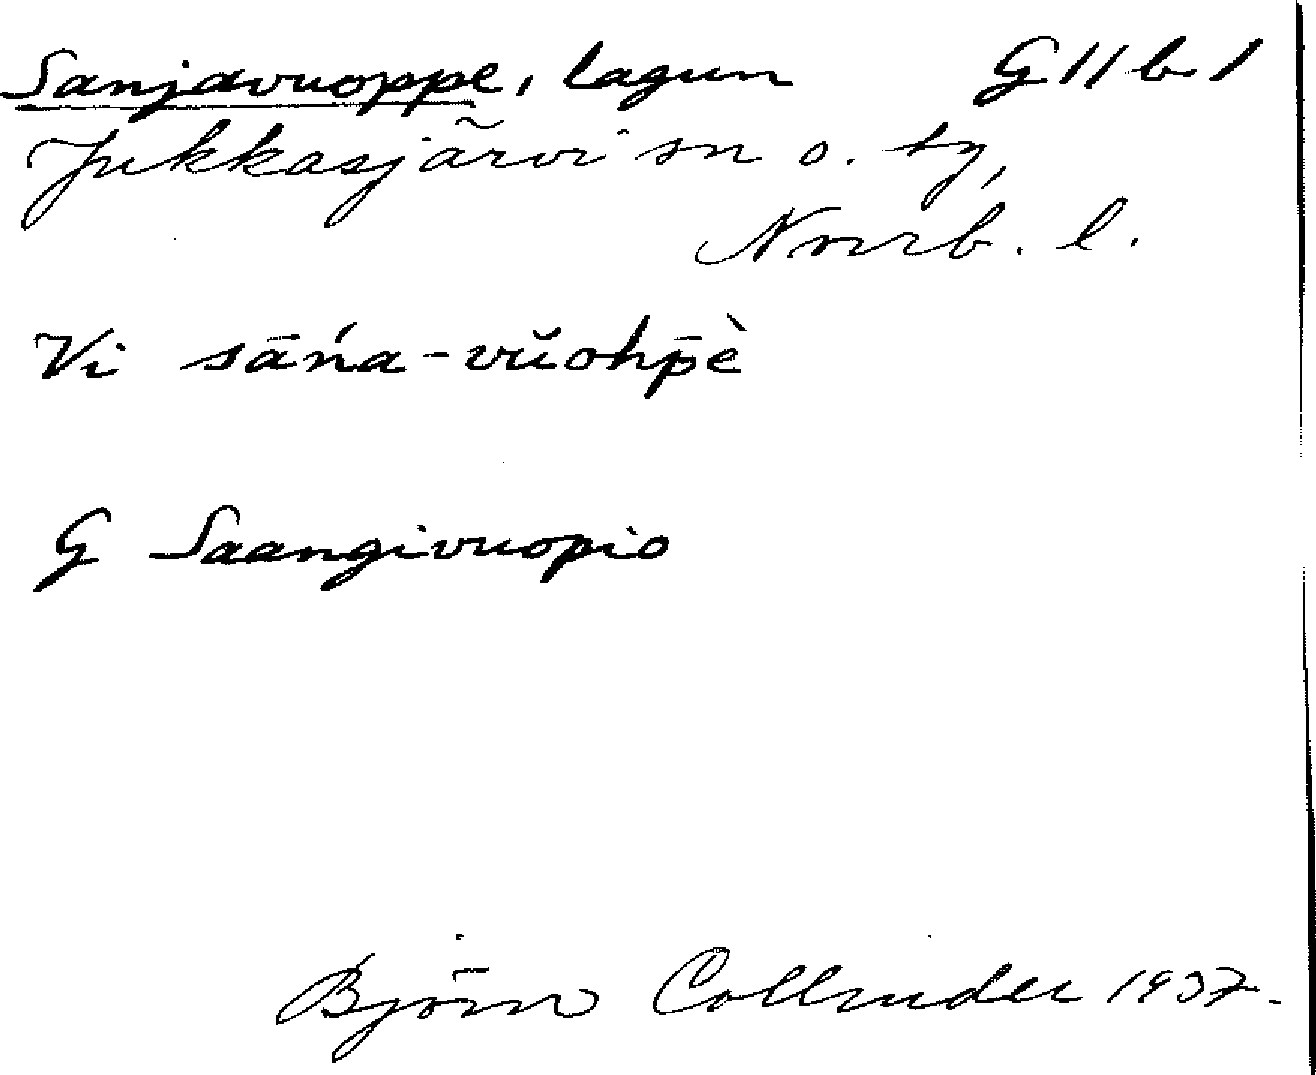 Sanjavuoppe, lagun G 11 b 1
Jukkasjärvi sn o. tg,
Norrb. l.
Vi sāńa-vŭohp̄è
G Saangivuopio
Björn Collinder 1937.